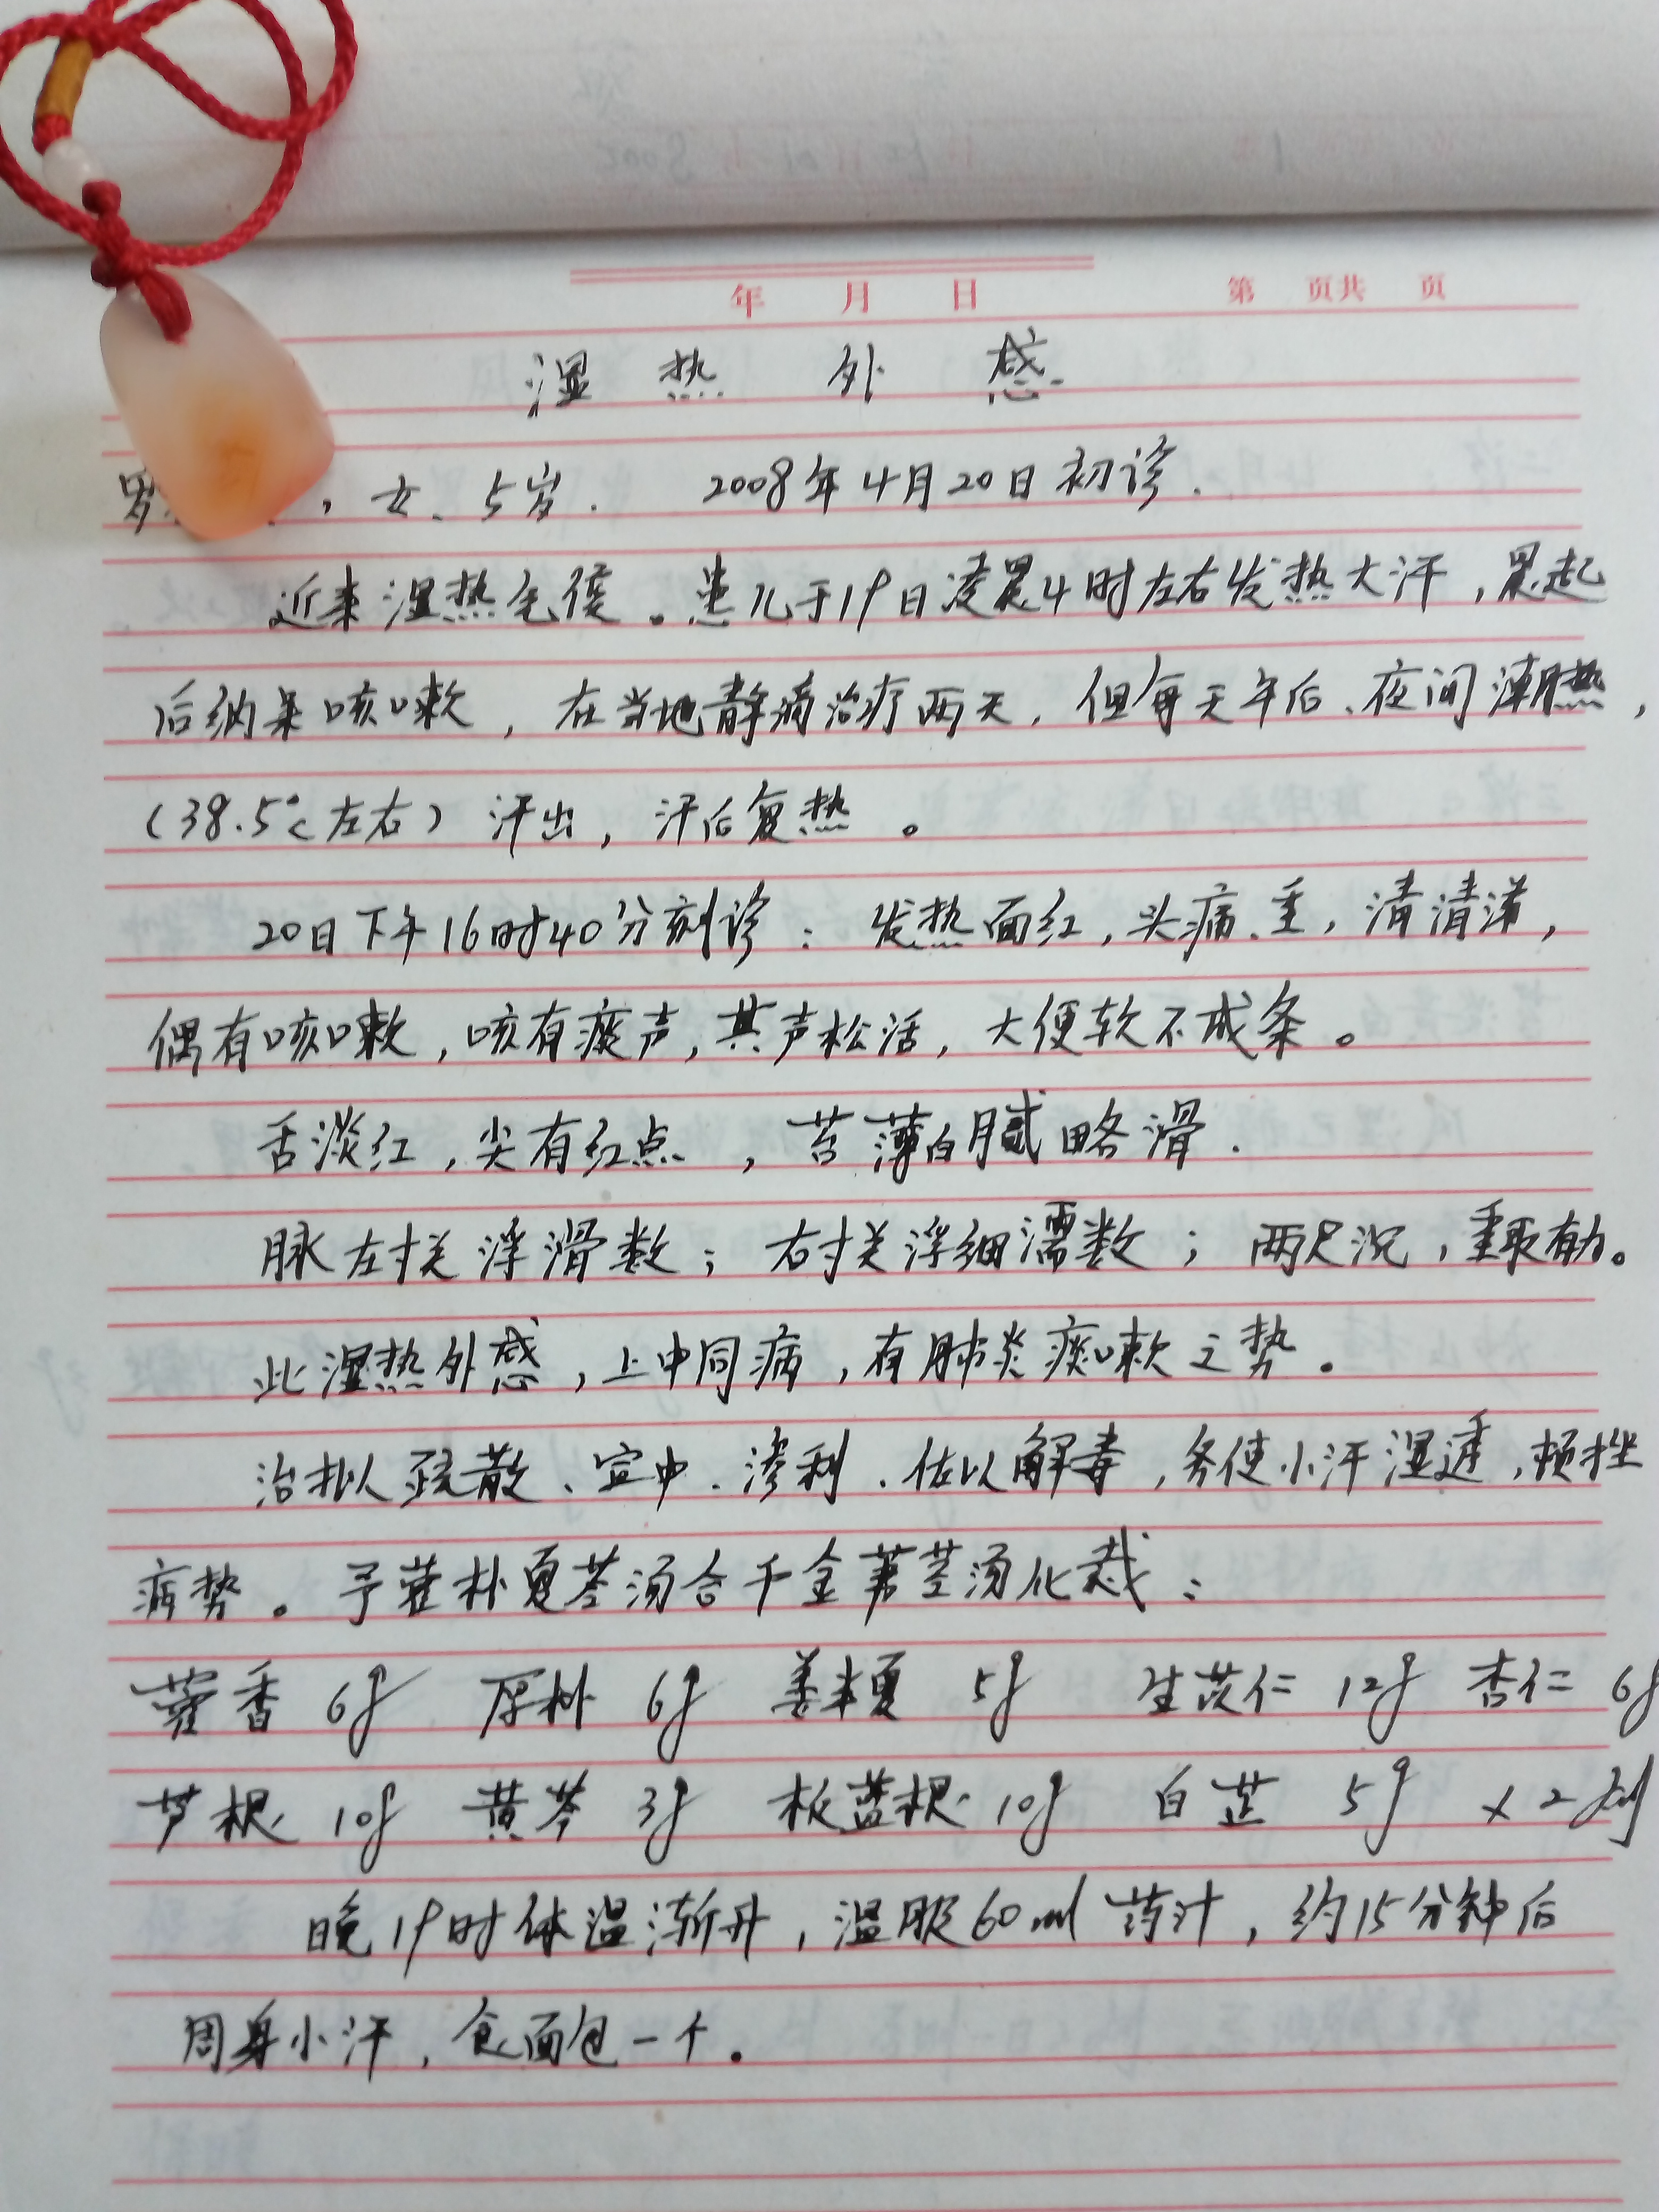 年 月 日 第 页共 页
湿热外感
罗 , 女、5岁. 2008年4月20日初诊.
近来湿热毛侵。患儿于19日凌晨4时左右发热大汗,晨起
后纳呆咳嗽,在当地静滴治疗两天,但每天午后、夜间潮热,
(38.5℃左右)汗出,汗后复热。
20日下午16时40分刻诊:发热面红,头痛、重,清清涕,
偶有咳嗽,咳有痰声,其声松活,大便软不成条。
舌淡红,尖有红点,苔薄白腻略滑.
脉左寸关浮滑数;右寸关浮细濡数;两尺沉,重取有力。
此湿热外感,上中同病,有肺炎痰嗽之势。
治拟疏散、宣中、渗利、佐以解毒,务使小汗湿透,顿挫
病势。予藿朴夏苓汤合千金苇茎汤化裁:
藿香 6g 厚朴 6g 姜半夏 5g 生苡仁 12g 杏仁 6g
芦根 10g 黄芩 3g 板蓝根 10g 白芷 5g ×2剂
晚19时体温渐升,温服60ml药汁,约15分钟后
周身小汗,食面包一个。